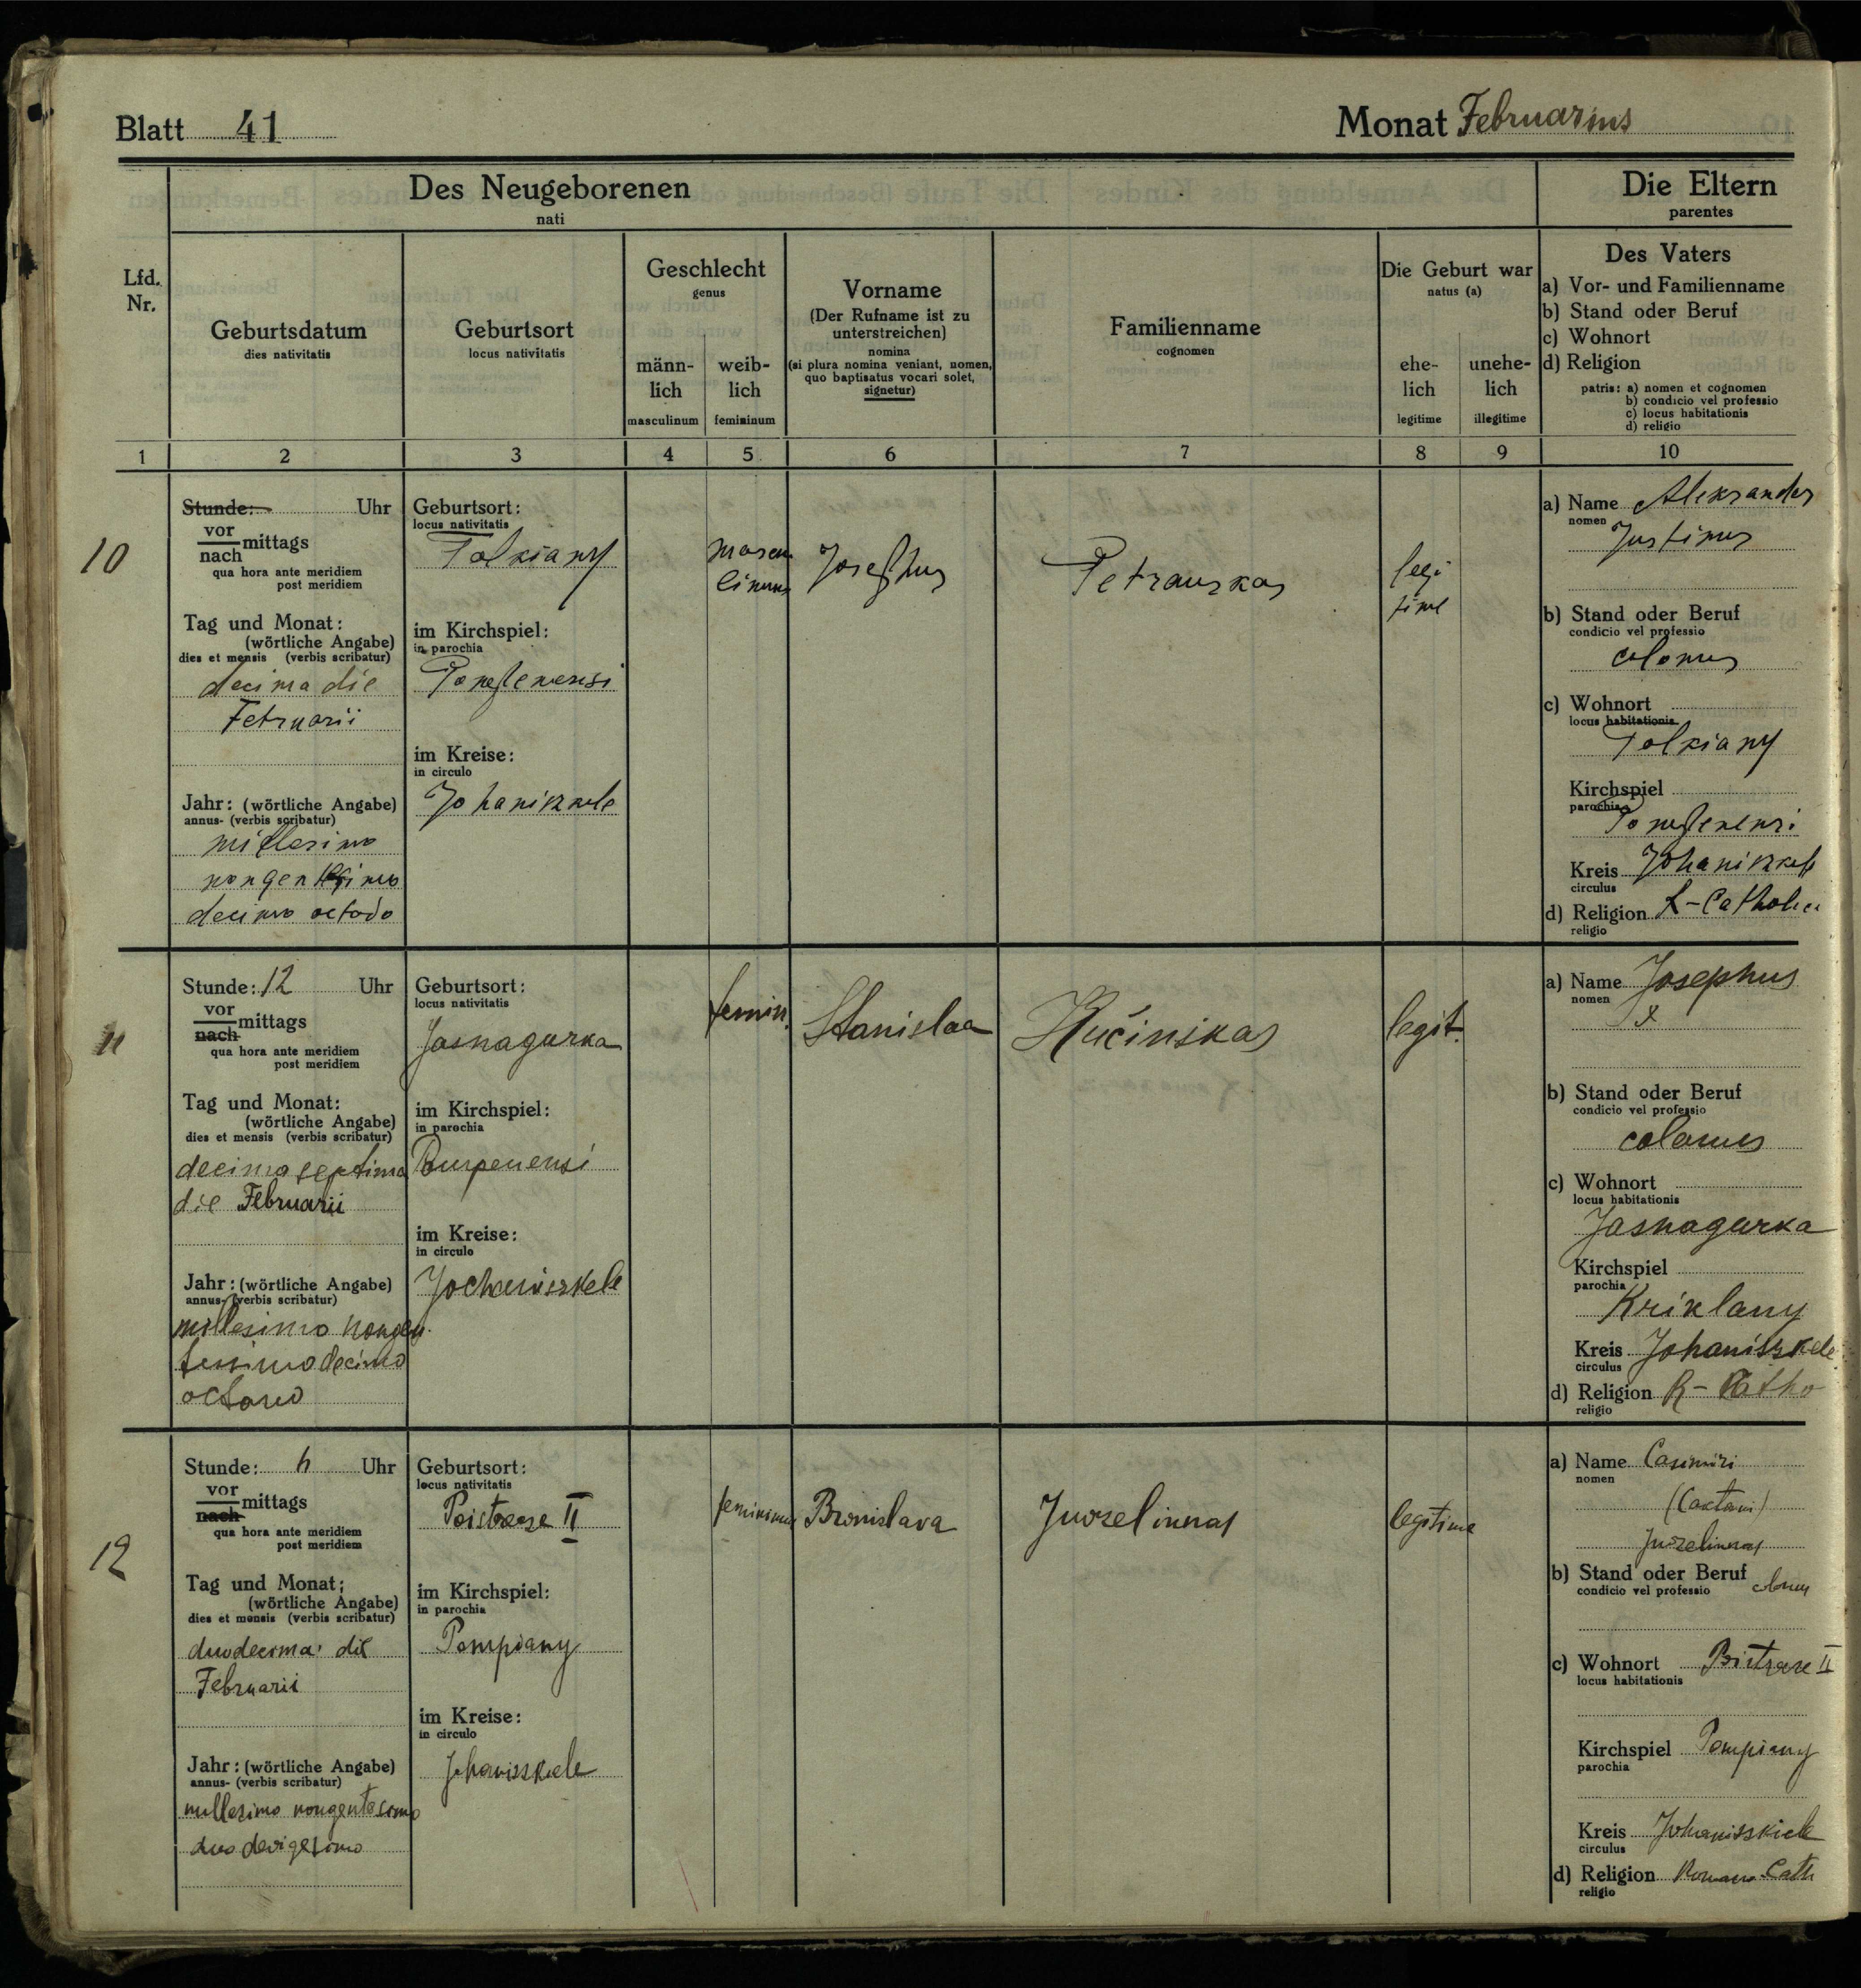 Blatt 41
Monat Februarius
Des Neugeborenen
nati
Die Eltern
parentes
Lfd. Nr.
Geburtsdatum
dies nativitatis
Geburtsort
locus nativitatis
Geschlecht
genus
männ-
lich
masculinum
weib-
lich
femininum
Vorname
(Der Rufname ist zu
unterstreichen)
nomina
(si plura nomina veniant, nomen,
quo baptisatus vocari solet,
signetur)
Familienname
cognomen
Die Geburt war
natus (a)
ehe-
lich
legitime
unehe-
lich
illegitime
Des Vaters
a) Vor- und Familienname
b) Stand oder Beruf
c) Wohnort
d) Religion
patris: a) nomen et cognomen
b) condicio vel professio
c) locus habitationis
d) religio
1 2 3 4 5 6 7 8 9 10
10
Stunde: Uhr
vor
nach mittags
qua hora ante meridiem
post meridiem
Tag und Monat:
(wörtliche Angabe)
dies et mensis (verbis scribatur)
decima die
Februarii
Jahr: (wörtliche Angabe)
annus- (verbis scribatur)
millesimo
nongentesimo
decimo octavo
Geburtsort:
locus nativitatis
Tolkiany
im Kirchspiel:
in parochia
im Kreise:
in circulo
Johaniszkele
mascu
linum
Josephus
Petrauskas
legi
time
a) Name Aleksander
nomen
Justinus
b) Stand oder Beruf
condicio vel professio
colonus
c) Wohnort
locus habitationis
Tolkiany
Kirchspiel
parochia
Kreis Johaniszkele
circulus
d) Religion R-Catholic
religio
11
Stunde: 12 Uhr
vor
nach mittags
qua hora ante meridiem
post meridiem
Tag und Monat:
(wörtliche Angabe)
dies et mensis (verbis scribatur)
decima septima
die Februarii
Jahr: (wörtliche Angabe)
annus- (verbis scribatur)
millesimo nongen-
tesimo decimo
octavo
Geburtsort:
locus nativitatis
Jasnagurka
im Kirchspiel:
in parochia
im Kreise:
in circulo
Jochaniszkele
femin.
Stanislaa
Kučinskas
legit.
a) Name Josephus
nomen
b) Stand oder Beruf
condicio vel professio
colonus
c) Wohnort
locus habitationis
Jasnagurka
Kirchspiel
parochia
Kriklany
Kreis Johaniszkele
circulus
d) Religion R-Catho
religio
12
Stunde: h Uhr
vor
nach mittags
qua hora ante meridiem
post meridiem
Tag und Monat:
(wörtliche Angabe)
dies et mensis (verbis scribatur)
duodecima die
Februarii
Jahr: (wörtliche Angabe)
annus- (verbis scribatur)
millesimo nongentesimo
duodevigesimo
Geburtsort:
locus nativitatis
II
im Kirchspiel:
in parochia
Pompiany
im Kreise:
in circulo
Johaniszkiele
femininum
Bronislava
Juozelinnas
legitime
a) Name Casimiri
nomen
(Caetani)
Juozelinnas
b) Stand oder Beruf
condicio vel professio
c) Wohnort II
locus habitationis
Kirchspiel Pompiany
parochia
Kreis Johaniszkiele
circulus
d) Religion Romano-Cath
religio